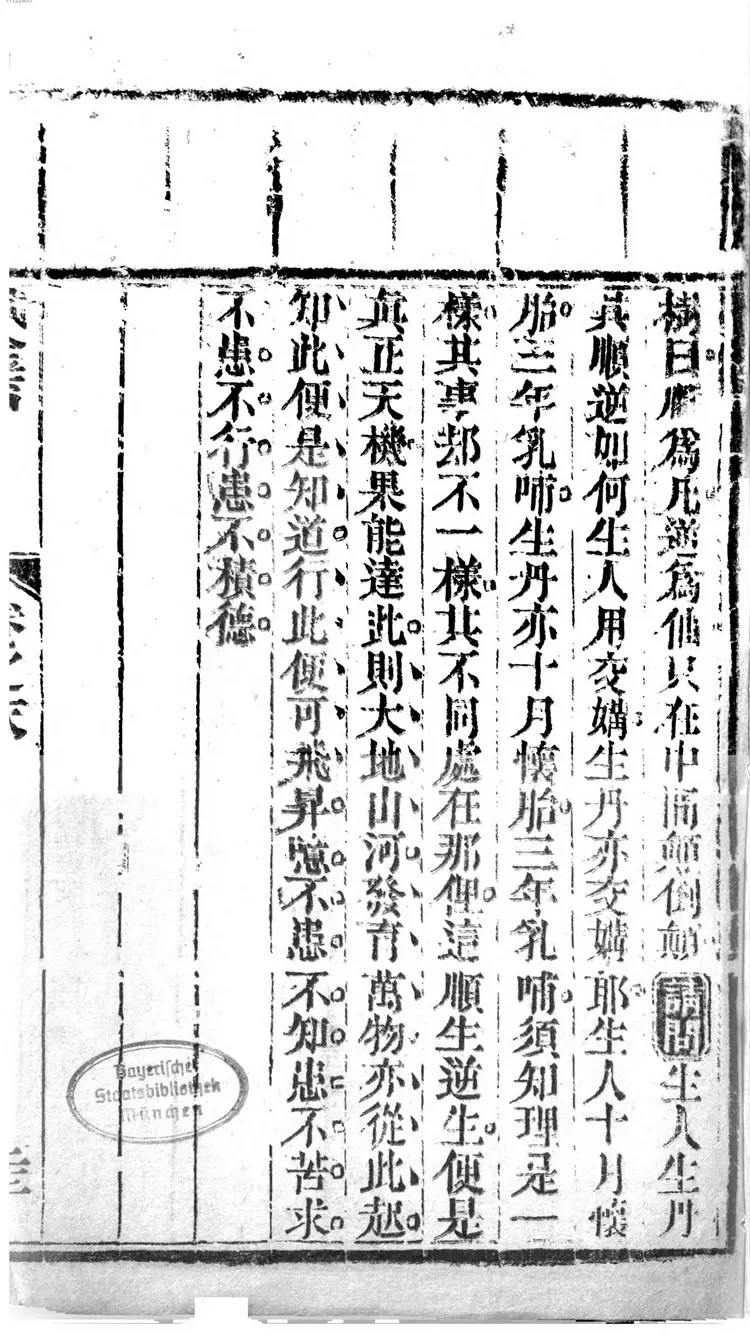 樹曰順爲凡逆爲仙只在中間顛倒顛請問生人生丹
其順逆如何生人用交媾生丹亦交媾耶生人十月懷
胎三年乳哺生丹亦十月懷胎三年乳哺須知理是一
樣其事却不一樣其不同處在那俚這順生逆生便是
眞正天機果能達此則大地山河發育萬物亦從此起
知此便是知道行此便可飛昇噫不患不知患不苦求
不患不行患不積德
Bayerische
Staatsbibliothek
München